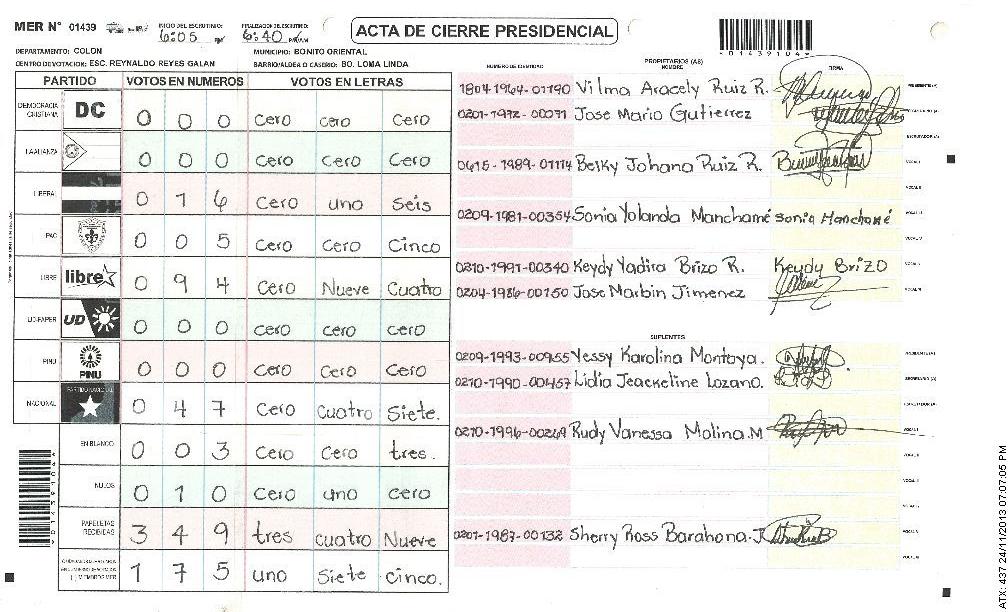 MER N° 01439
INICIO DEL ESCRUTINIO: 6:05 PM
FINALIZACION DEL ESCRUTINIO: 6:40 PM/AM
ACTA DE CIERRE PRESIDENCIAL
*01439104*
DEPARTAMENTO: COLON
MUNICIPIO: BONITO ORIENTAL
CENTRO DE VOTACION: ESC. REYNALDO REYES GALAN
BARRIO/ALDEA O CASERIO: BO. LOMA LINDA
PARTIDO VOTOS EN NUMEROS VOTOS EN LETRAS
DEMOCRACIA CRISTIANA DC 0 0 0 cero cero Cero
LA ALIANZA 0 0 0 Cero Cero Cero
LIBERAL 0 1 6 Cero uno Seis
PAC 0 0 5 Cero Cero Cinco
LIBRE libre 0 9 4 Cero Nueve Cuatro
UD-FAPER UD 0 0 0 cero cero cero
PINU PINU 0 0 0 Cero Cero Cero
NACIONAL PARTIDO NACIONAL 0 4 7 Cero cuatro Siete.
EN BLANCO 0 0 3 Cero Cero tres.
NULOS 0 1 0 Cero uno cero
PAPELETAS RECIBIDAS 3 4 9 tres cuatro Nueve
1 7 5 uno Siete cinco.
NUMERO DE IDENTIDAD
PROPIETARIOS (AS)
NOMBRE
FIRMA
1804-1964-01190 Vilma Aracely Ruiz R. PRESIDENTE (A)
0201-1972-00071 Jose Mario Gutierrez SECRETARIO (A)
ESCRUTADOR (A)
0615-1989-01114 Belky Johana Ruiz R. VOCAL I
VOCAL II
0209-1981-00354 Sonia Yolanda Manchamé Sonia Manchamé VOCAL III
VOCAL IV
0210-1991-00340 Keydy Yadira Brizo R. Keydy Brizo VOCAL V
0204-1986-00150 Jose Marbin Jimenez VOCAL VI
SUPLENTES
0209-1993-00955 Yessy Karolina Montoya. PRESIDENTE (A)
0210-1990-00457 Lidia Jeackeline Lozano. SECRETARIO (A)
ESCRUTADOR (A)
0210-1996-00269 Rudy Vanessa Molina.M VOCAL I
VOCAL II
VOCAL III
VOCAL IV
0201-1987-00132 Sherry Ross Barahona.J VOCAL V
VOCAL VI
*01439104*
ATX: 437 24/11/2013 07:07:05 PM